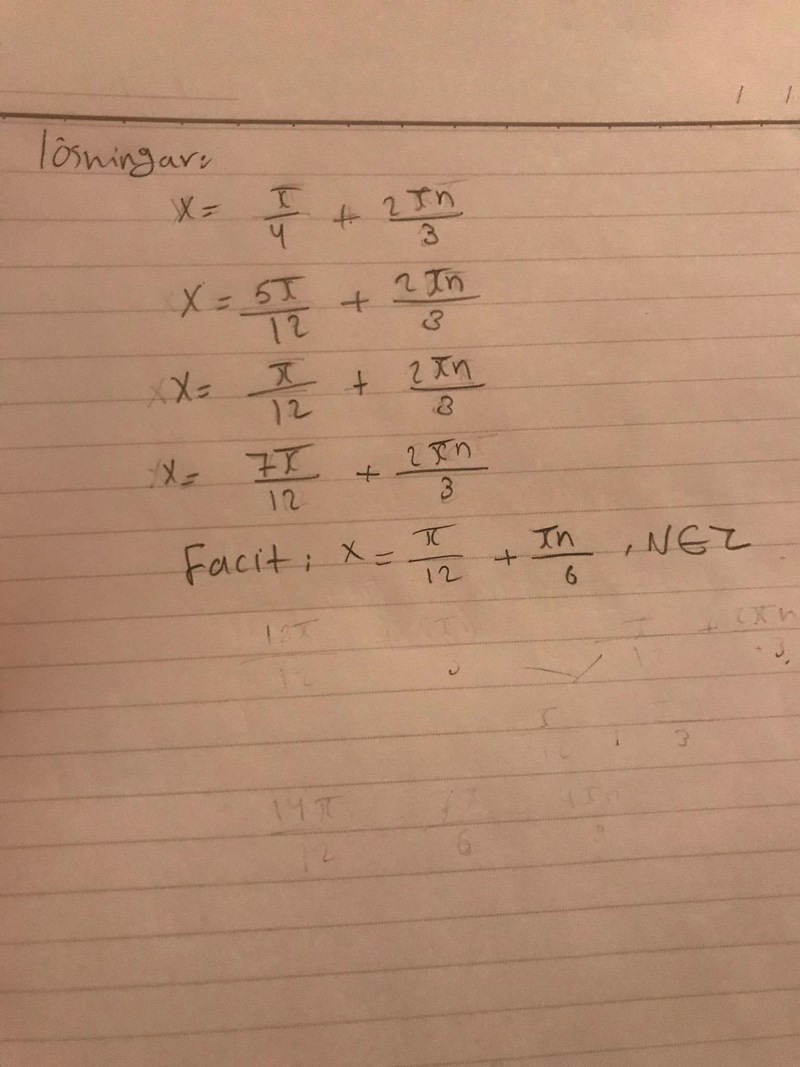 lösningar:
x = π/4 + 2πn/3
x = 5π/12 + 2πn/3
x = π/12 + 2πn/3
x = 7π/12 + 2πn/3
Facit: x = π/12 + πn/6 , N∈Z